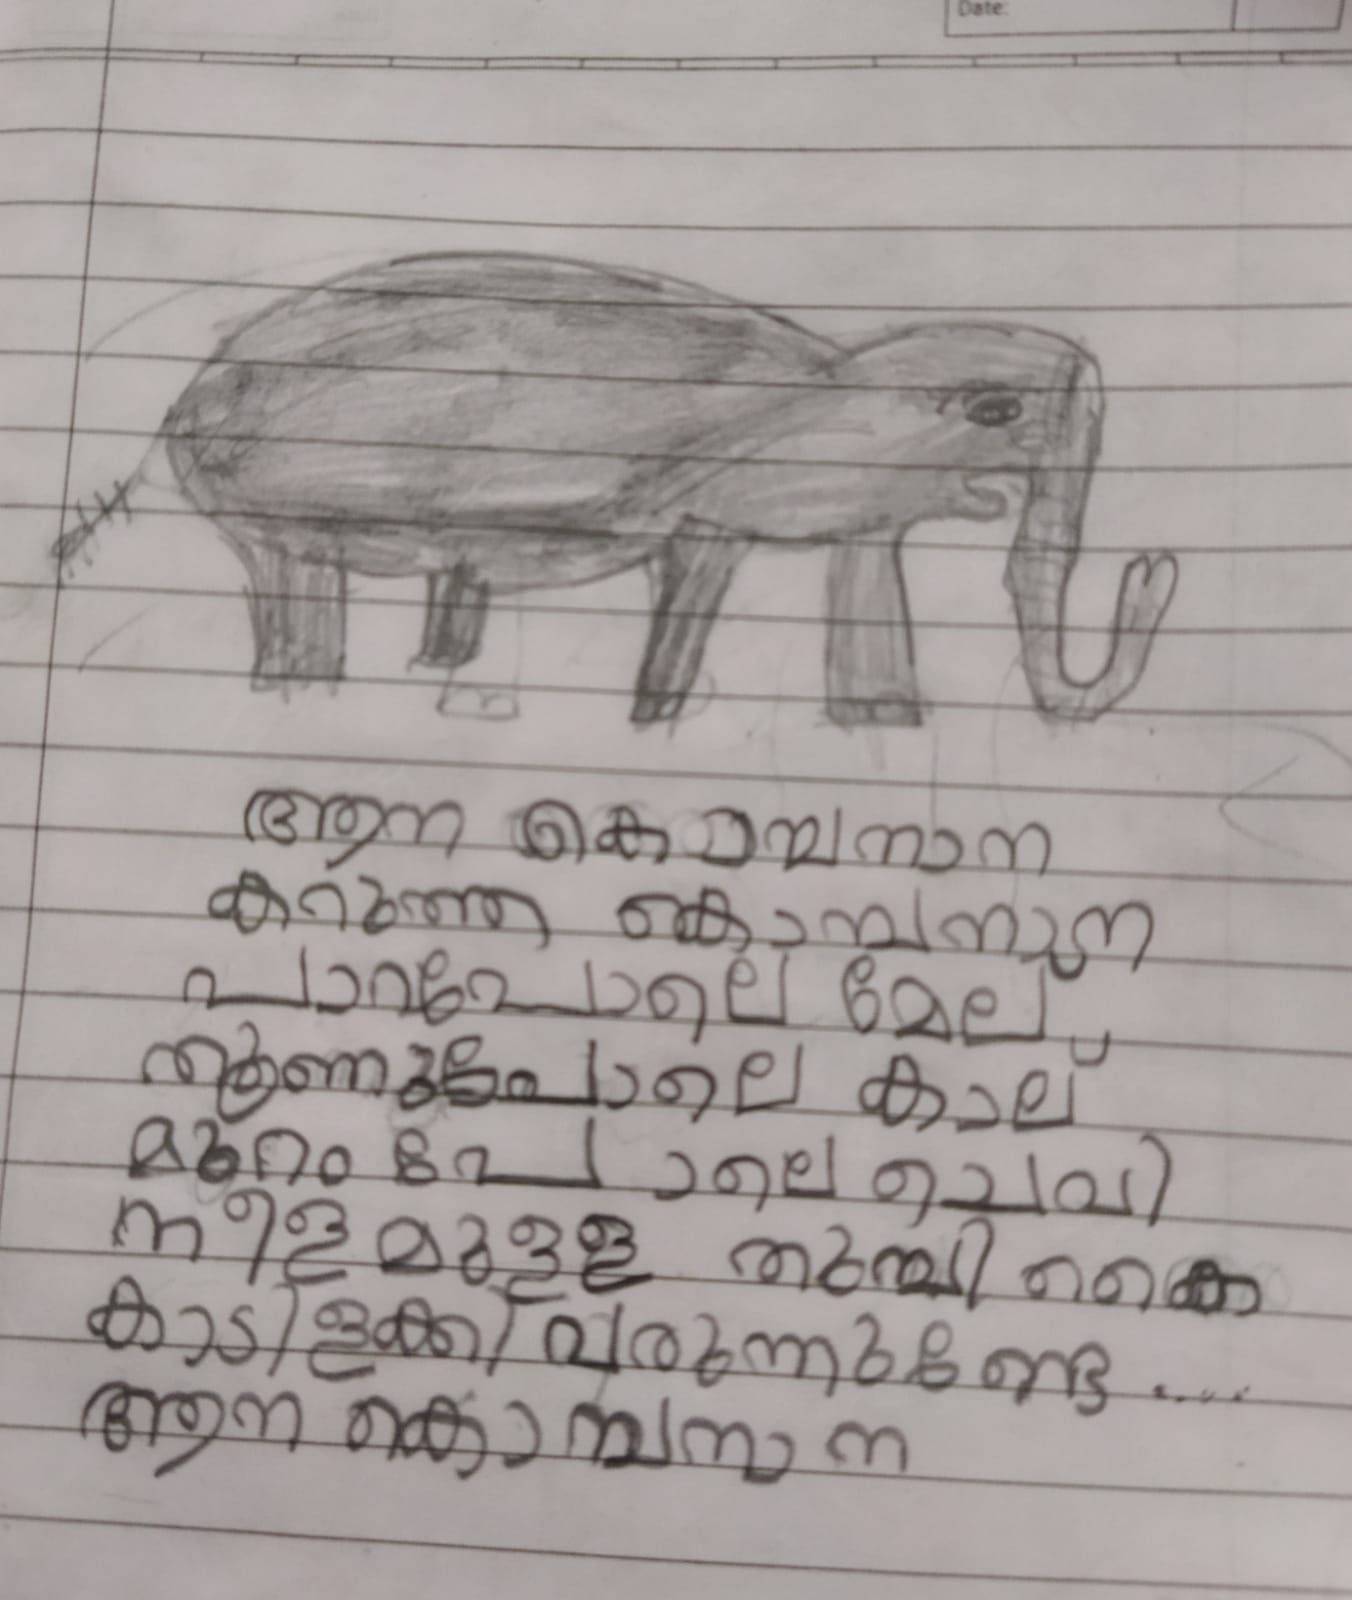 Date:
ആന കൊമ്പനാന
കറുത്ത കൊമ്പനാന
പാറപോലെ മേല്
തൂണുപോലെ കാല്
മുറം പോലെ ചെവി
നീളമുള്ള തുമ്പി കൈ
കാടിളക്കി വരുന്നുണ്ടേ ....
ആന കൊമ്പനാന